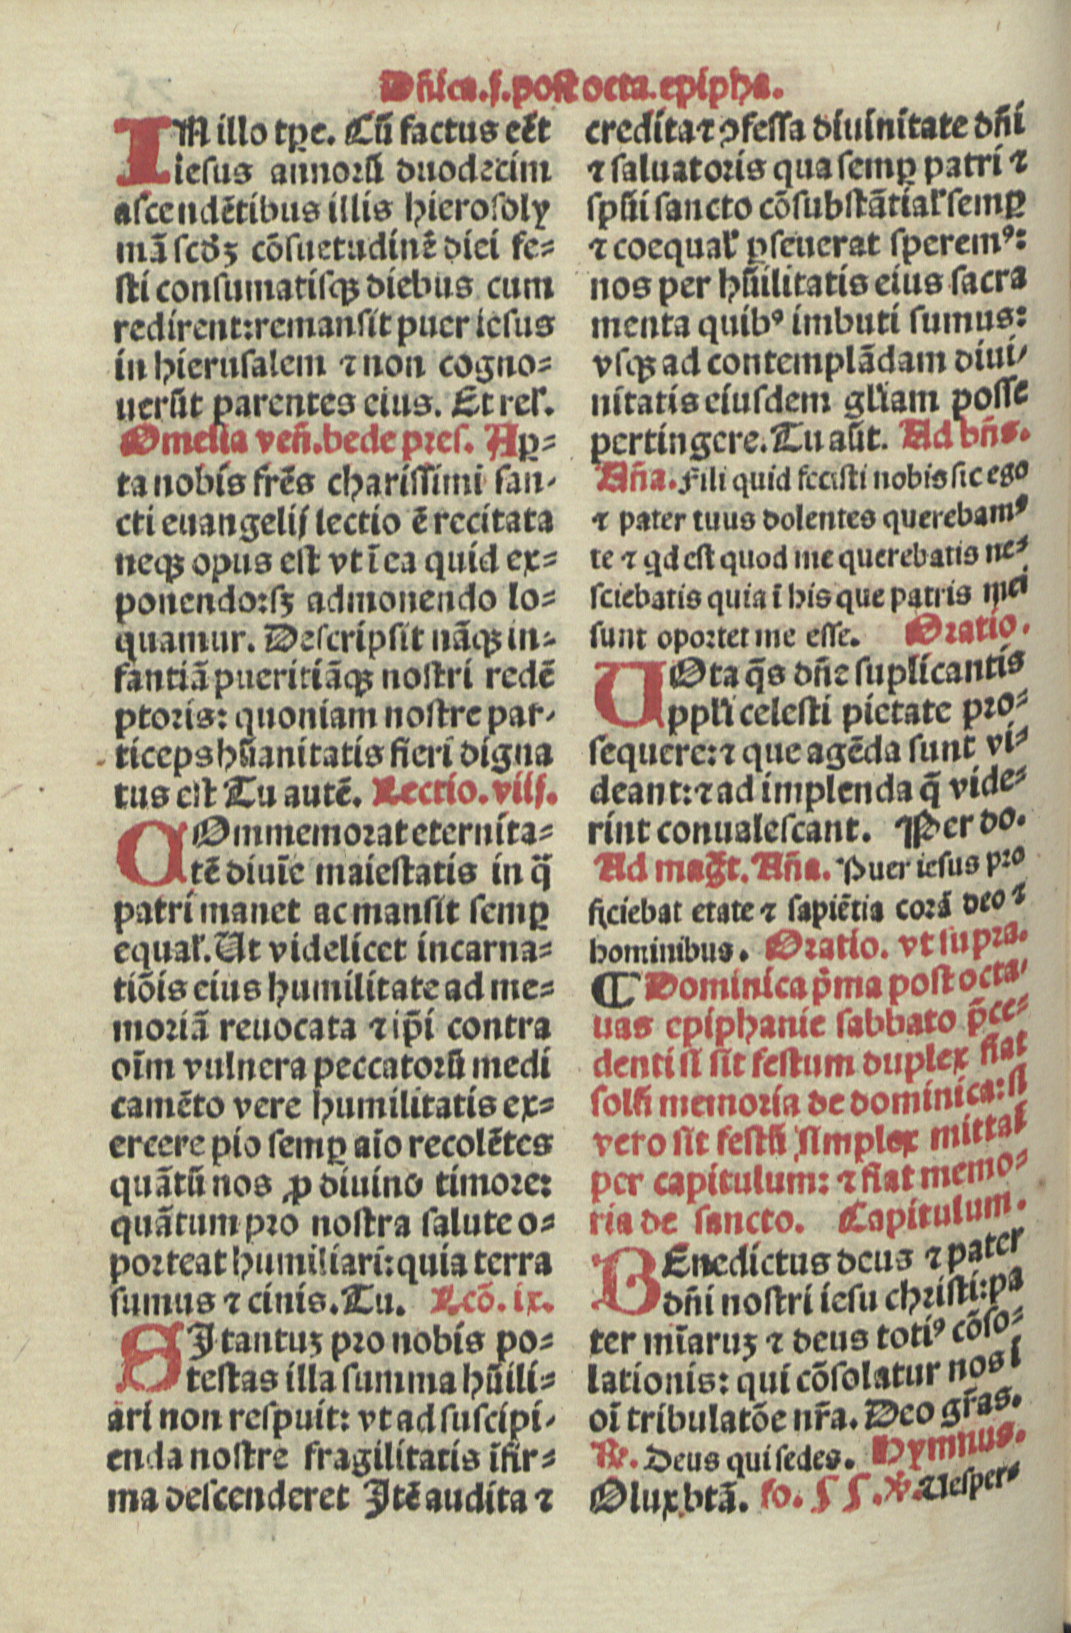 Dñica.j.post octa.epipha.
IM illo tp̄e. Cū factus eēt
iesus annorū duodecim
ascendētibus illis hierosoly
mā scdꝫ cōsuetudinē diei fe=
sti consumatisqꝫ diebus cum
redirent:remansit puer iesus
in hierusalem ⁊ non cogno=
uerūt parentes eius. Et rel'.
Omelia veñ.bede pres. Ap̲=
ta nobis frēs charissimi san-
cti euangelij lectio ē recitata
neqꝫ opus est vt ī ea quid ex=
ponendo:sꝫ admonendo lo=
quamur. Descripsit nāqꝫ in-
fantiā pueritiāqꝫ nostri redē
ptoris: quoniam nostre par-
ticeps hūanitatis fieri digna
tus est Tu autē. Lectio.viij.
COmmemorat eternita=
tē diuīe maiestatis in q̄
patri manet ac mansit semꝑ
equal'.Ut videlicet incarna=
tiōis eius humilitate ad me=
moriā reuocata ⁊ ip̄i contra
oīm vulnera peccatorū medi
camēto vere humilitatis ex=
ercere pio semꝑ aīo recolētes
quātū nos ꝓ diuino timore:
quātum pro nostra salute o=
porteat humiliari:quia terra
sumus ⁊ cinis.Tu. Lcō.ix.
SI tantuꝫ pro nobis po=
testas illa summa hūili=
ari non respuit: vt ad suscipi-
enda nostre fragilitatis īfir=
ma descenderet Itē audita ⁊
credita ⁊ ꝯfessa diuinitate dñi
⁊ saluatoris qua semꝑ patri ⁊
spūi sancto cōsubstātial' semꝑ
⁊ coequal' ꝑseuerat speremꝰ:
nos per hūilitatis eius sacra
menta quibꝰ imbuti sumus:
vsqꝫ ad contemplādam diui-
nitatis eiusdem gl'iam posse
pertingere. Tu aūt. Ad bñs.
Aña. Fili quid fecisti nobis sic ego
⁊ pater tuus dolentes querebamꝰ
te ⁊ qd est quod me querebatis ne=
sciebatis quia ī his que patris mei
sunt oportet me esse. Oratio.
UOta q̄s dñe suplicantis
ppl'i celesti pietate pro=
sequere:⁊ que agēda sunt vi=
deant:⁊ ad implenda q̄ vide=
rint conualescant. Per do.
Ad mag̃t. Aña. Puer iesus pro
ficiebat etate ⁊ sapiētia corā deo ⁊
hominibus. Oratio. vt supra.
¶ Dominica p̄ma post octa-
uas epiphanie sabbato p̄ce=
denti si sit festum duplex fiat
solū memoria de dominica:si
vero sit festū simplex mittat'
per capitulum: ⁊ fiat memo=
ria de sancto. Capitulum.
BEnedictus deus ⁊ pater
dñi nostri iesu christi:pa
ter mīaruꝫ ⁊ deus totiꝰ cōso=
lationis: qui cōsolatur nos i
oī tribulatōe nr̄a. Deo gr̄as.
℟. Deus qui sedes. Hymnus.
O lux btā. fo. ℣. Uesper=